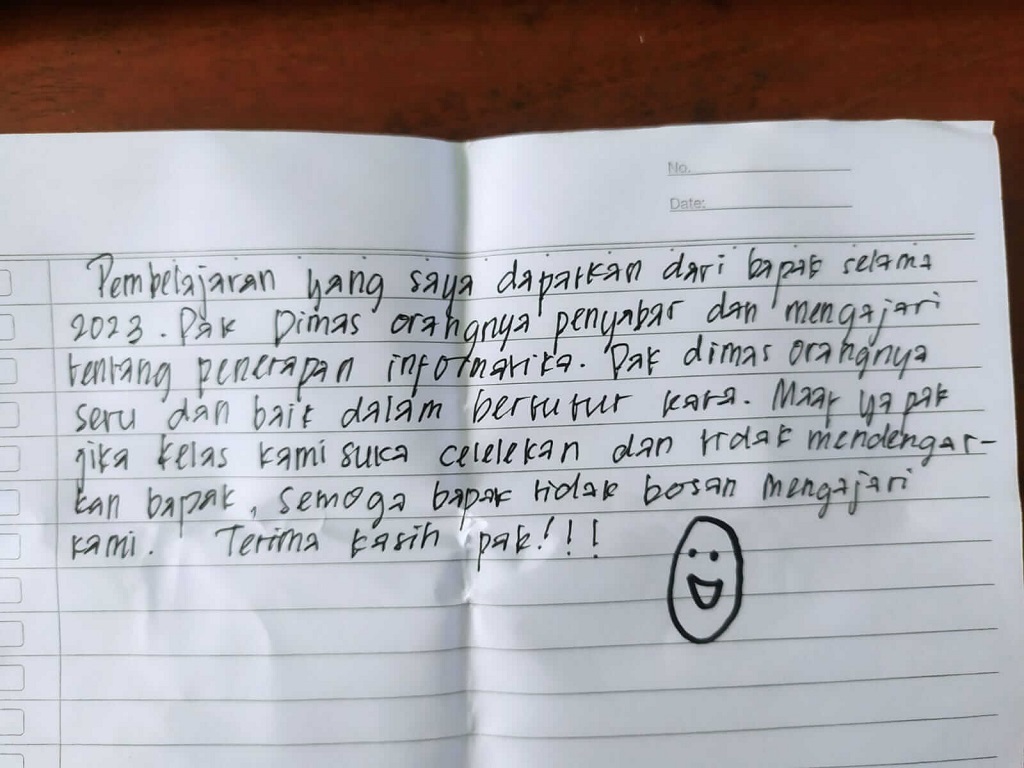 No.
Date:
Pembelajaran yang saya dapatkan dari bapak selama
2023. Pak Dimas orangnya penyabar dan mengajari
tentang penerapan informatika. Pak dimas orangnya
seru dan baik dalam bertutur kata. Maaf ya pak
jika kelas kami suka celelekan dan tidak mendengar-
kan bapak, semoga bapak tidak bosan mengajari
kami. Terima kasih pak!!!